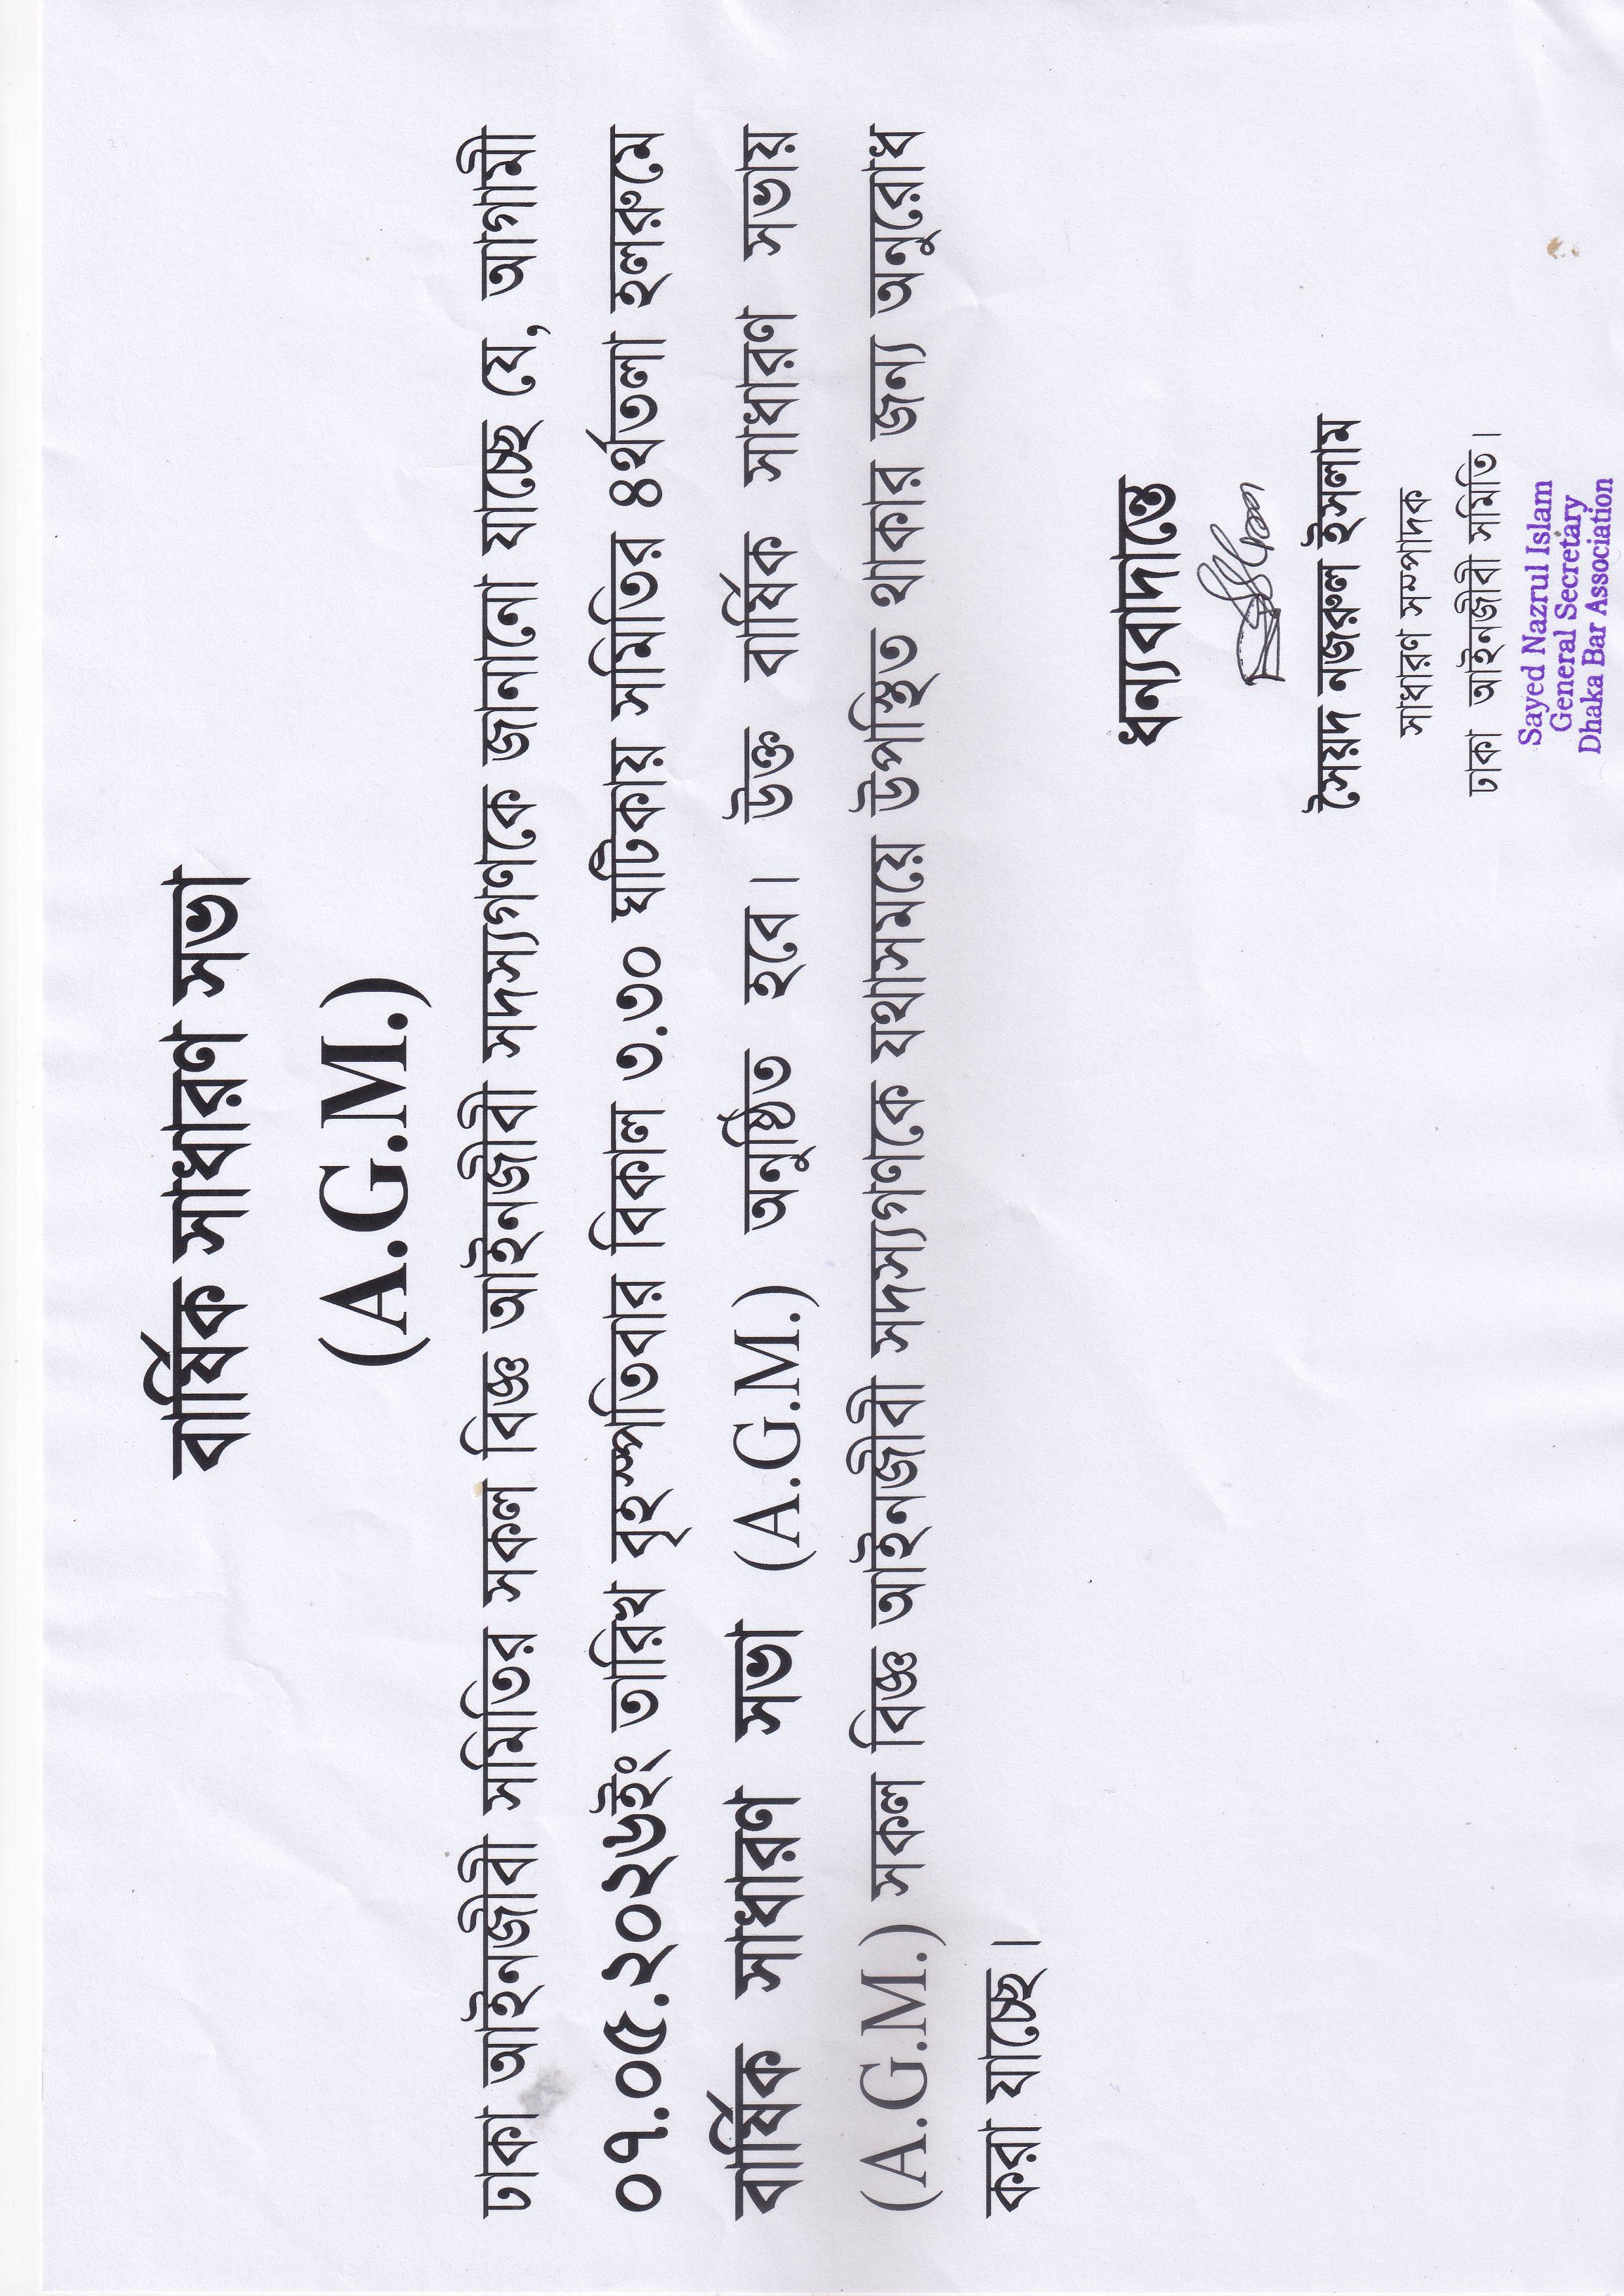 বার্ষিক সাধারণ সভা
(A.G.M.)
ঢাকা আইনজীবী সমিতির সকল বিজ্ঞ আইনজীবী সদস্যগণকে জানানো যাচ্ছে যে, আগামী
০৭.০৫.২০২৬ইং তারিখ বৃহস্পতিবার বিকাল ৩.৩০ ঘটিকায় সমিতির ৪র্থতলা হলরুমে
বার্ষিক সাধারণ সভা (A.G.M.) অনুষ্ঠিত হবে। উক্ত বার্ষিক সাধারণ সভায়
(A.G.M.) সকল বিজ্ঞ আইনজীবী সদস্যগণকে যথাসময়ে উপস্থিত থাকার জন্য অনুরোধ
করা যাচ্ছে।
ধন্যবাদান্তে
সৈয়দ নজরুল ইসলাম
সাধারণ সম্পাদক
ঢাকা আইনজীবী সমিতি।
Sayed Nazrul Islam
General Secretary
Dhaka Bar Association